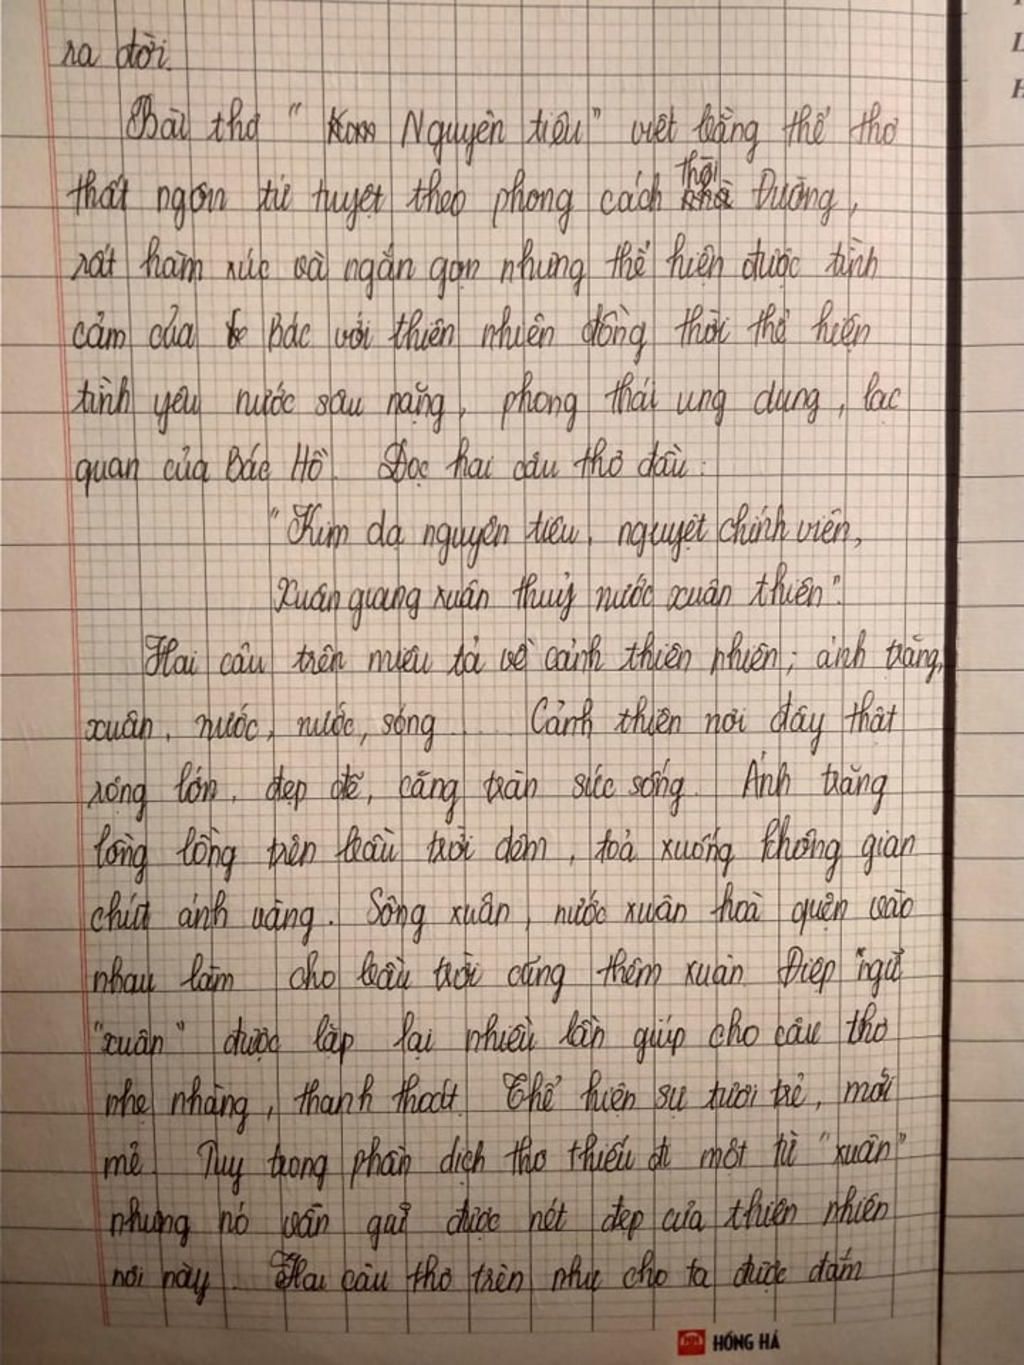 ra đời.
Bài thơ " Nguyên tiêu" viết bằng thể thơ
thất ngôn tứ tuyệt theo phong cách thời Đường,
rất hàm xúc và ngắn gọn nhưng thể hiện được tình
cảm của Bác với thiên nhiên đồng thời thể hiện
tình yêu nước sâu nặng, phong thái ung dung, lạc
quan của Bác Hồ. Đọc hai câu thơ đầu:
"Kim dạ nguyên tiêu, nguyệt chính viên,
Xuân giang xuân thuỷ nước xuân thiên".
Hai câu trên miêu tả về cảnh thiên nhiên; ánh trăng,
xuân, nước, nước, sông.... Cảnh thiên nơi đây thật
rộng lớn, đẹp đẽ, căng tràn sức sống. Ánh trăng
lồng lồng trên bầu trời đêm, toả xuống không gian
chút ánh vàng. Sông xuân, nước xuân hoà quện vào
nhau làm cho bầu trời cũng thêm xuân. Điệp "ngữ
"xuân" được lặp lại nhiều lần giúp cho câu thơ
nhẹ nhàng, thanh thoát. Thể hiện sự tươi trẻ, mới
mẻ. Tuy trong phần dịch thơ thiếu đi một từ "xuân"
nhưng nó vẫn giữ được nét đẹp của thiên nhiên
nơi này. Hai câu thơ trên như cho ta được đắm
HỒNG HÀ